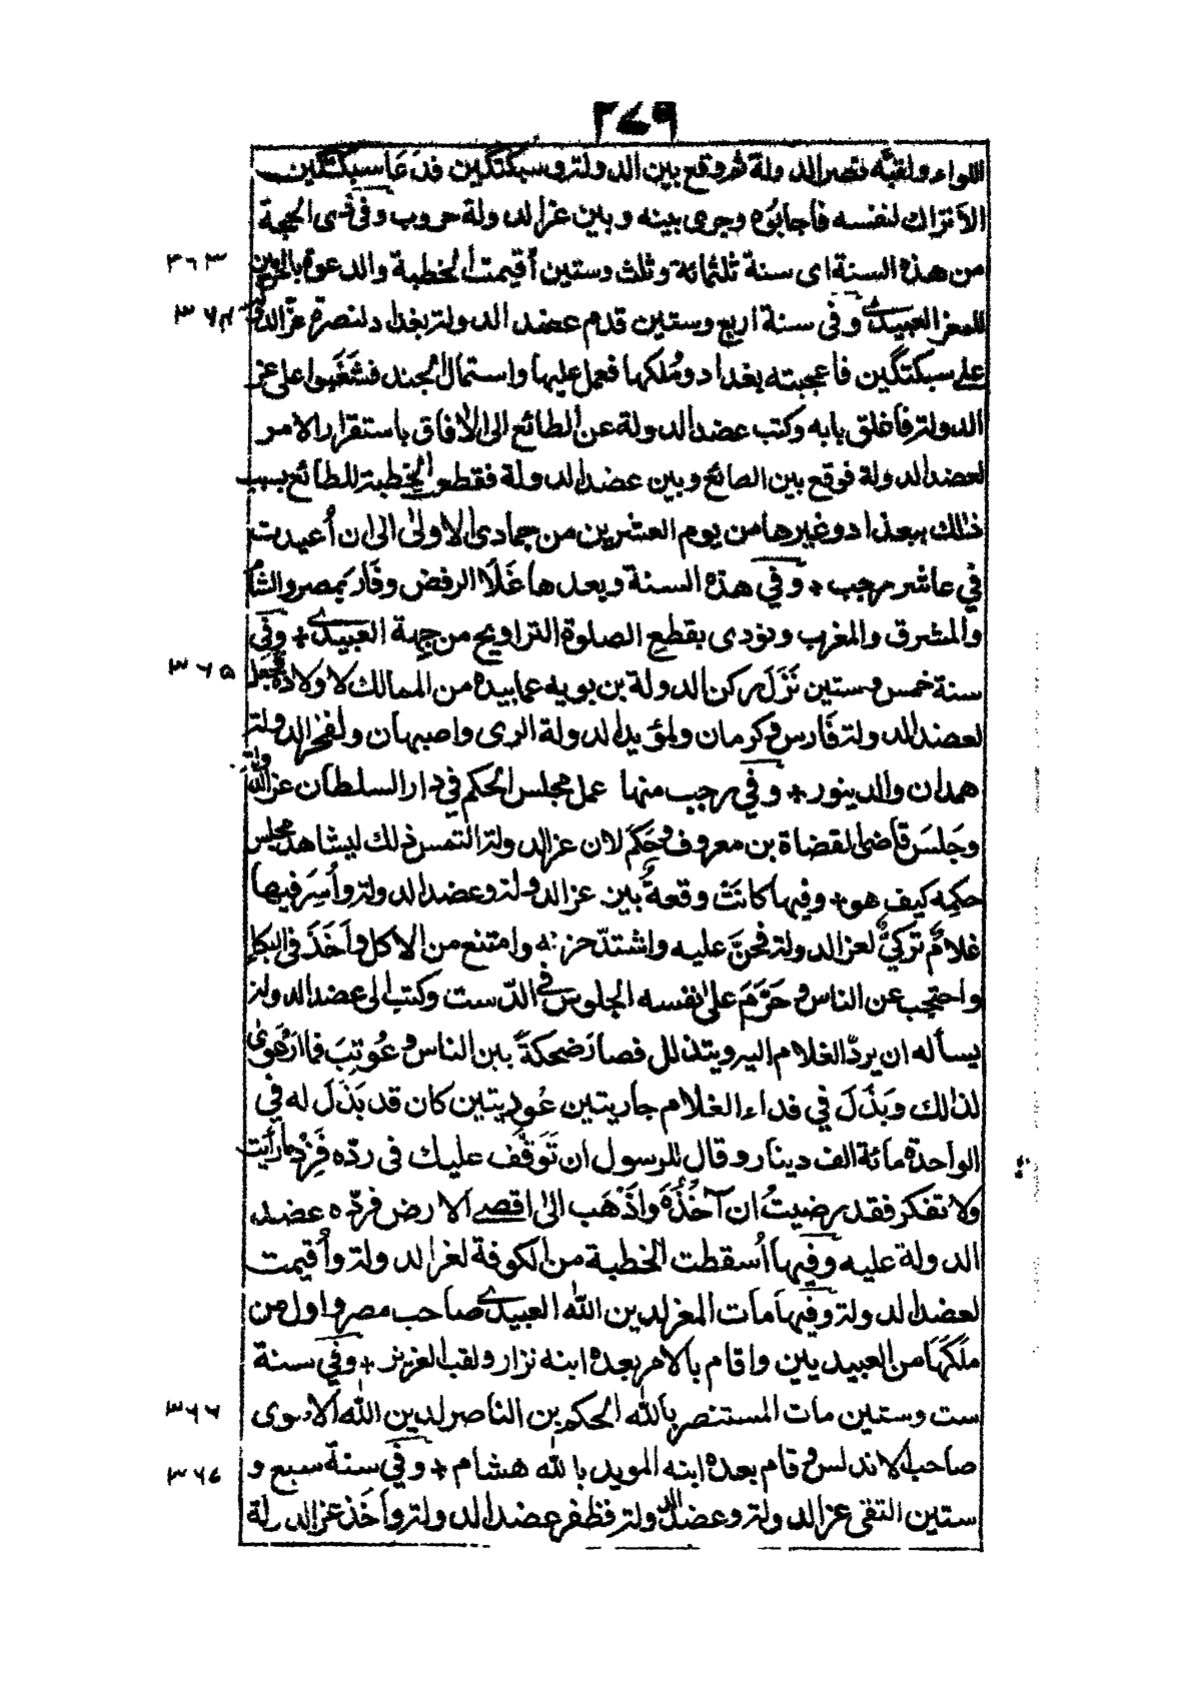 ٢٧٩
اللواء ولقبه نصر الدولة ثم وقع بين الدولة وسبكتگين فدَعَا سبكتگين
الاتراك لنفسه فاجابوه وجرى بينه وبين عزالدولة حروب وفى ذى الحجة
من هذه السنة اى سنة ثلثمائة وثلث وستين اُقيمت الخطبة والدعوة بالحرمين ٣٦٣
للمعز العبيدى وفى سنة اربع وستين قدم عضد الدولة بغداد لنصرة عزّالدولة ٣٦٤
على سبكتگين فاعجبته بغداد ومُلكها فعمل عليها واستمال الجند فشَغَبوا على عز
الدولة فاغلق بابه وكتب عضد الدولة عن الطائع الى الافاق باستقرار الامر
لعضدالدولة فوقع بين الطائع وبين عضدالدولة فقطعوا الخطبة للطائع بسبب
ذلك ببغداد وغيرها من يوم العشرين من جمادى الاولى الى ان اُعيدت
في عاشر رجب + وفي هذه السنة وبعدها غَلَا الرفض وفَارَ بمصر والشام
والمشرق والمغرب ونودى بقطع الصلوة التراويح من جِهة العبيدى + وفي
سنة خمس وستين نَزَلَ ركن الدولة بن بويه عما بيده من الممالك لاولاده فجعل ٣٦٥
لعضدالدولة فَارس وكرمان ولمؤيدالدولة الرى واصبهان ولفخرالدولة
همدان والدينور + وفي رجب منها عمل مجلس الحكم في دار السلطان عزالدولة
وجَلسَ قاضى القضاة بن معروف وحَكَمَ لان عزالدولة التمس ذلك ليشاهد مجلس
حكمِه كيف هو + وفيها كانَتْ وقعةٌ بين عزالدولة وعضدالدولة واُسِرَ فيها
غلامٌ تركيٌّ لعزالدولة فجُنّ عليه واشتدّ حزنه وامتنع من الاكل واَخَذَ فى البكاء
واحتجب عن الناس وحَرَّمَ على نفسه الجلوس في الدّست وكتب الى عضدالدولة
يسأله ان يردّ الغلام اليه ويتذلل فصارَ ضحكةً بين الناس وعُوتِبَ فما ارْعَوٰى
لذلك وبَذَلَ في فداء الغلام جاريتين عُوديتين كان قد بَذَلَ له في
الواحدة مائة الف دينار وقال للرسول ان تَوَقَّف عليك فى ردّه فَزِدْ ما رأيت
ولا تفكر فقد رضيتُ ان آخُذَهٗ واَذْهَب الى اقصى الارض فردّه عضد
الدولة عليه وفيها اُسقطت الخطبة من الكوفة لعزالدولة واُقيمت
لعضدالدولة وفيها مات المعزلدين الله العبيدى صاحب مصر واول من
ملكهَا من العبيديين واقام بالامر بعده ابنه نزار ولقب العزيز + وفي سنة
ست وستين مات المستنصر بالله الحكم بن الناصر لدين الله الاموى ٣٦٦
صاحب الاندلس وقام بعده ابنه المويد بالله هشام + وفي سنة سبع و ٣٦٧
ستين التقى عزالدولة وعضدالدولة فظفر عضدالدولة واَخَذ عزالدولة